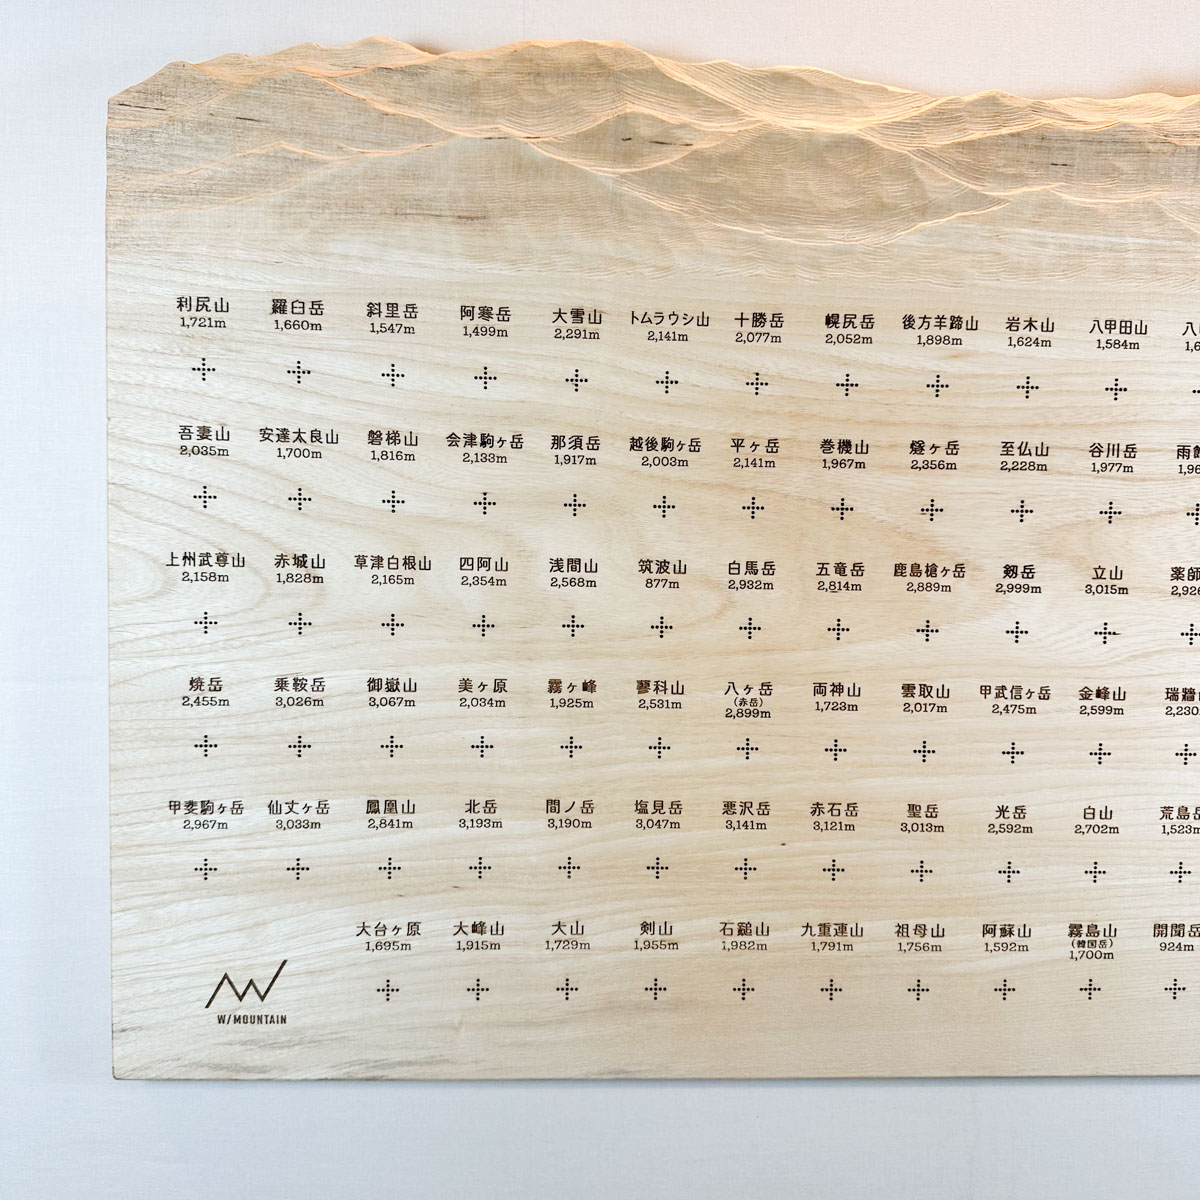 利尻山 羅臼岳 斜里岳 阿寒岳 大雪山 トムラウシ山 十勝岳 幌尻岳 後方羊蹄山 岩木山 八甲田山 八
1,721m 1,660m 1,547m 1,499m 2,291m 2,141m 2,077m 2,052m 1,898m 1,624m 1,584m 1,6
吾妻山 安達太良山 磐梯山 会津駒ヶ岳 那須岳 越後駒ヶ岳 平ヶ岳 巻機山 燧ヶ岳 至仏山 谷川岳 雨
2,035m 1,700m 1,816m 2,133m 1,917m 2,003m 2,141m 1,967m 2,356m 2,228m 1,977m 1,96
上州武尊山 赤城山 草津白根山 四阿山 浅間山 筑波山 白馬岳 五竜岳 鹿島槍ヶ岳 剱岳 立山 薬師
2,158m 1,828m 2,165m 2,354m 2,568m 877m 2,932m 2,814m 2,889m 2,999m 3,015m 2,926
焼岳 乗鞍岳 御嶽山 美ヶ原 霧ヶ峰 蓼科山 八ヶ岳 両神山 雲取山 甲武信ヶ岳 金峰山 瑞牆
(赤岳)
2,455m 3,026m 3,067m 2,034m 1,925m 2,531m 2,899m 1,723m 2,017m 2,475m 2,599m 2,230
甲斐駒ヶ岳 仙丈ヶ岳 鳳凰山 北岳 間ノ岳 塩見岳 悪沢岳 赤石岳 聖岳 光岳 白山 荒島岳
2,967m 3,033m 2,841m 3,193m 3,190m 3,047m 3,141m 3,121m 3,013m 2,592m 2,702m 1,523m
大台ヶ原 大峰山 大山 剣山 石鎚山 九重連山 祖母山 阿蘇山 霧島山 開聞岳
(韓国岳)
1,695m 1,915m 1,729m 1,955m 1,982m 1,791m 1,756m 1,592m 1,700m 924m
W/MOUNTAIN